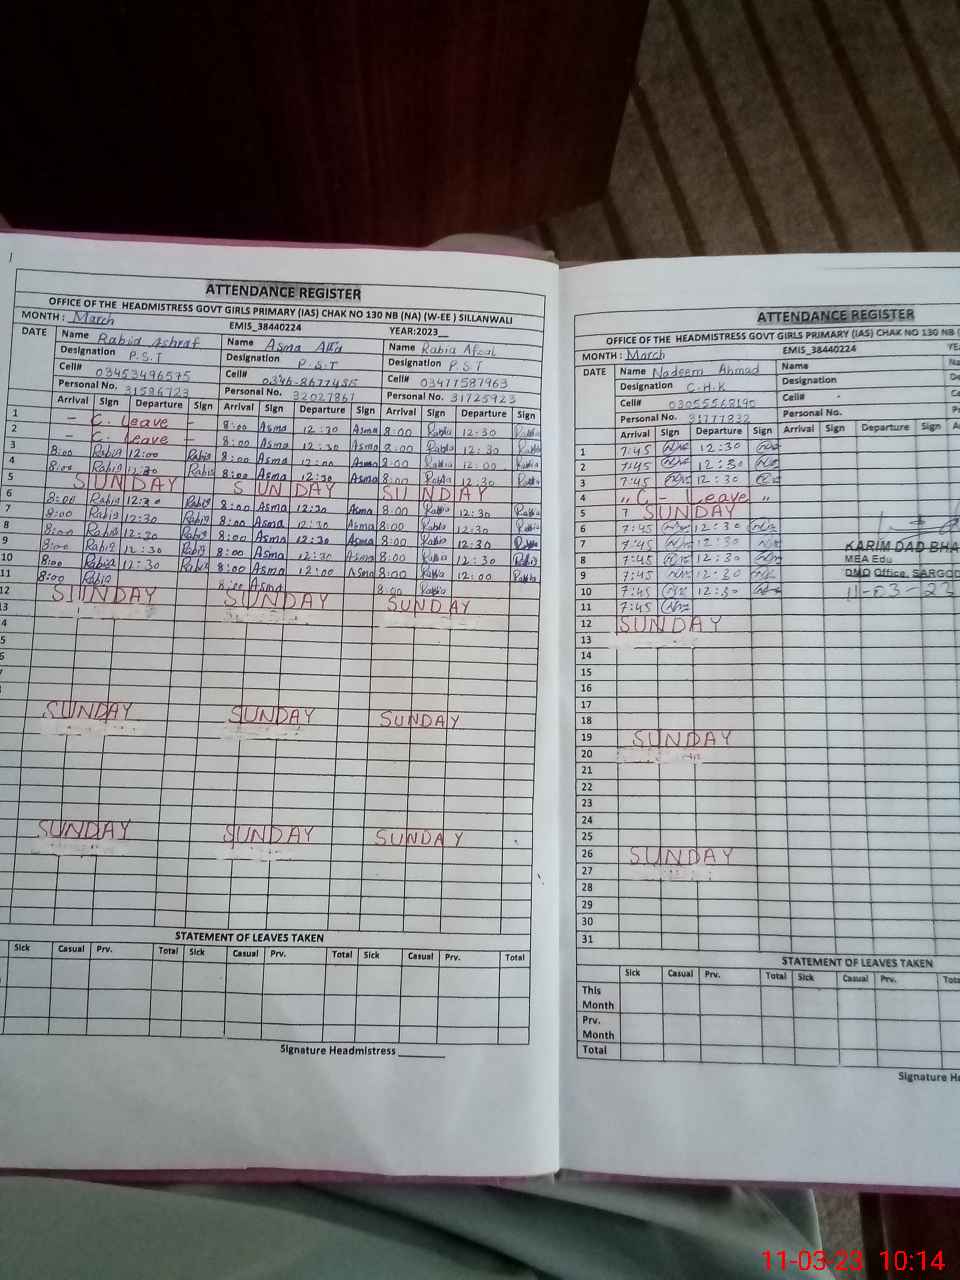 ATTENDANCE REGISTER
OFFICE OF THE HEADMISTRESS GOVT GIRLS PRIMARY (IAS) CHAK NO 130 NB (NA) (W-EE ) SILLANWALI
MONTH : March EMIS_38440224 YEAR:2023__
DATE Name Rabia Ashraf Name Asma Name Rabia Afzal
Designation P.S.T Designation P.S.T Designation P.S.T
Cell# 03453496575 Cell# Cell# 03477587963
Personal No. 31596723 Personal No. 32027861 Personal No. 31725923
Arrival Sign Departure Sign Arrival Sign Departure Sign Arrival Sign Departure Sign
1 - C. Leave - 8:00 Asma 12:30 Asma 8:00 Rabia 12:30 Rabia
2 - C. Leave - 8:00 Asma 12:30 Asma 8:00 Rabia 12:30 Rabia
3 8:00 Rabia 12:00 Rabia 8:00 Asma 12:00 Asma 8:00 Rabia 12:00 Rabia
4 8:00 Rabia 12:30 Rabia 8:00 Asma 12:30 Asma 8:00 Rabia 12:30 Rabia
5 SUNDAY SUNDAY SUNDAY
6 8:00 Rabia 12:30 Rabia 8:00 Asma 12:30 Asma 8:00 Rabia 12:30 Rabia
7 8:00 Rabia 12:30 Rabia 8:00 Asma 12:30 Asma 8:00 Rabia 12:30 Rabia
8 8:00 Rabia 12:30 Rabia 8:00 Asma 12:30 Asma 8:00 Rabia 12:30 Rabia
9 8:00 Rabia 12:30 Rabia 8:00 Asma 12:30 Asma 8:00 Rabia 12:30 Rabia
10 8:00 Rabia 12:30 Rabia 8:00 Asma 12:00 Asma 8:00 Rabia 12:00 Rabia
11 8:00 Rabia 8:00 Asma 8:00 Rabia
12 SUNDAY SUNDAY SUNDAY
13
SUNDAY SUNDAY SUNDAY
SUNDAY SUNDAY SUNDAY
STATEMENT OF LEAVES TAKEN
Sick Casual Prv. Total Sick Casual Prv. Total Sick Casual Prv. Total
Signature Headmistress
ATTENDANCE REGISTER
OFFICE OF THE HEADMISTRESS GOVT GIRLS PRIMARY (IAS) CHAK NO 130 NB
MONTH : March EMIS_38440224
DATE Name Nadeem Ahmad Name
Designation C.H.K Designation
Cell# 03055568190 Cell#
Personal No. 31777832 Personal No.
Arrival Sign Departure Sign Arrival Sign Departure Sign
1 7:45 12:30
2 7:45 12:30
3 7:45 12:30
4 " C - Leave "
5 SUNDAY
6 7:45 12:30
7 7:45 12:30
8 7:45 12:30
9 7:45 12:30
10 7:45 12:30
11 7:45
12 SUNDAY
13
14
15
16
17
18
19 SUNDAY
20
21
22
23
24
25
26 SUNDAY
27
28
29
30
31
KARIM DAD
MEA Edu
DMO Office, SARGOD
11-03-23
STATEMENT OF LEAVES TAKEN
Sick Casual Prv. Total Sick Casual Prv.
This Month
Prv. Month
Total
Signature
11-03-23 10:14